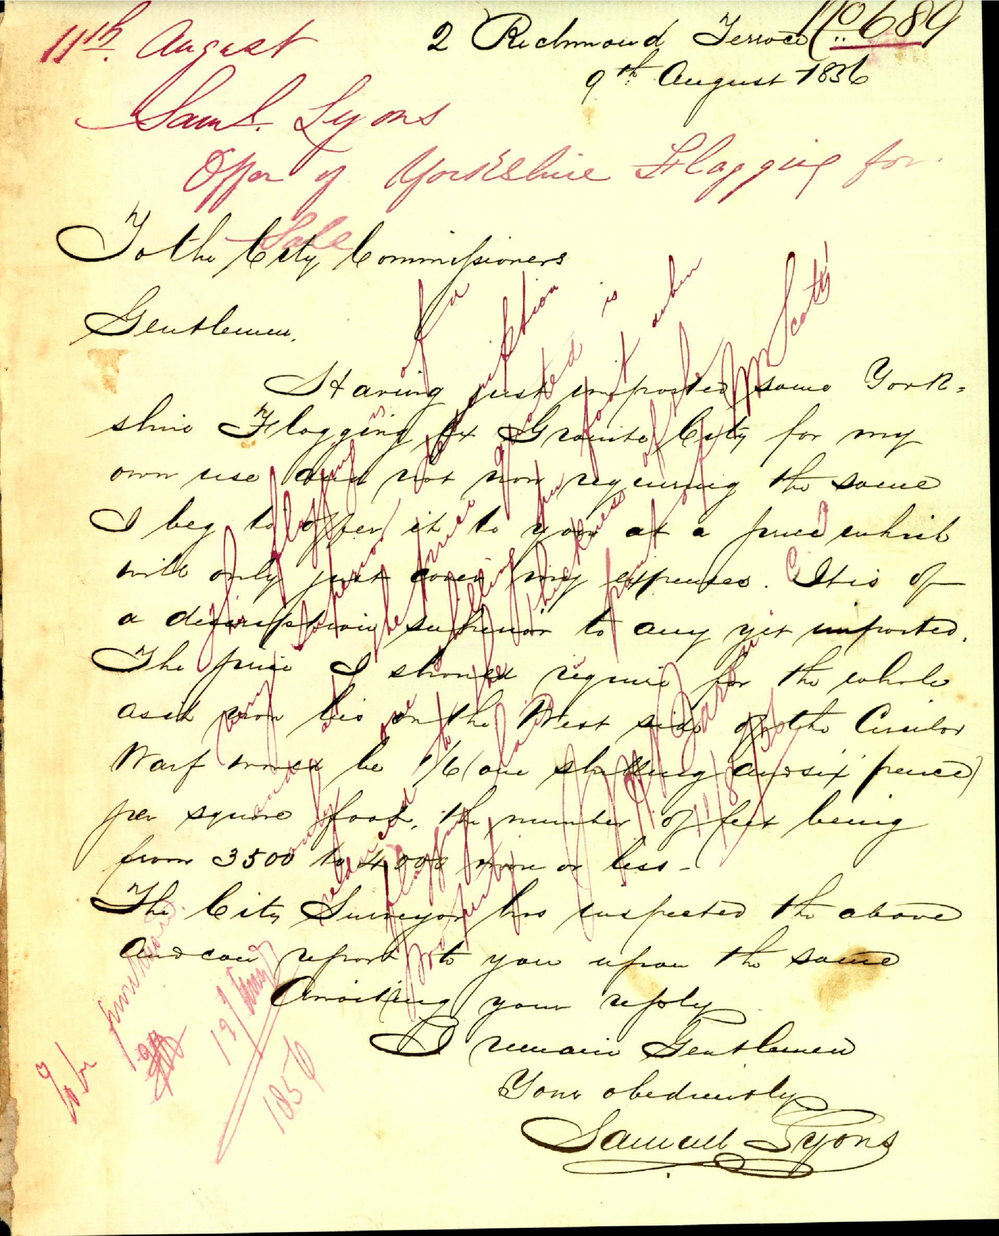 No 689
11th August
2 Richmond Terrace
9th August 1856
Saml. Lyons
Offer of Yorkshire Flagging for
Sale
To the City Commissioners
Gentlemen,
Having just imported some York-
shire Flagging Ex Granite City for my
own use and not now requiring the same
I beg to offer it to you at a price which
will only just cover my expenses. It is of
a description superior to any yet imported.
The price I should require for the whole
as it now lies on the West side of the Circular
Warf would be 1/6 (one shilling and six pence)
per square foot, the number of feet being
from 3500 to 4000 more or less -
The City Surveyor has inspected the above
and can report to you upon the same
Awaiting your reply
I remain Gentlemen
Your obediently
Samuel Lyons
The flagging is of a
very superior description
and the price quoted is
only one shilling per foot when
reduced to the thickness of the
flagging laid in front of Mr Scott's
property
12/8/56
To be purchased
12 Aug
1856